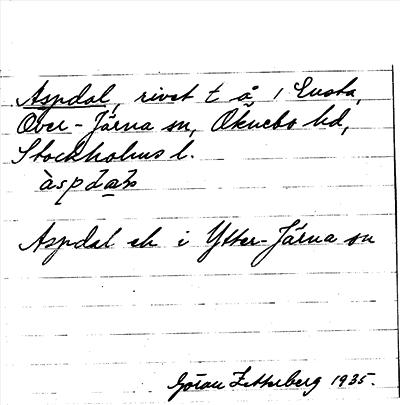 Aspdal, rivet t å i Ensta,
Över-Järna sn, Öknebo hd,
Stockholms l.
Aspdal ek i Ytter-Järna sn
Göran Zetterberg 1935.